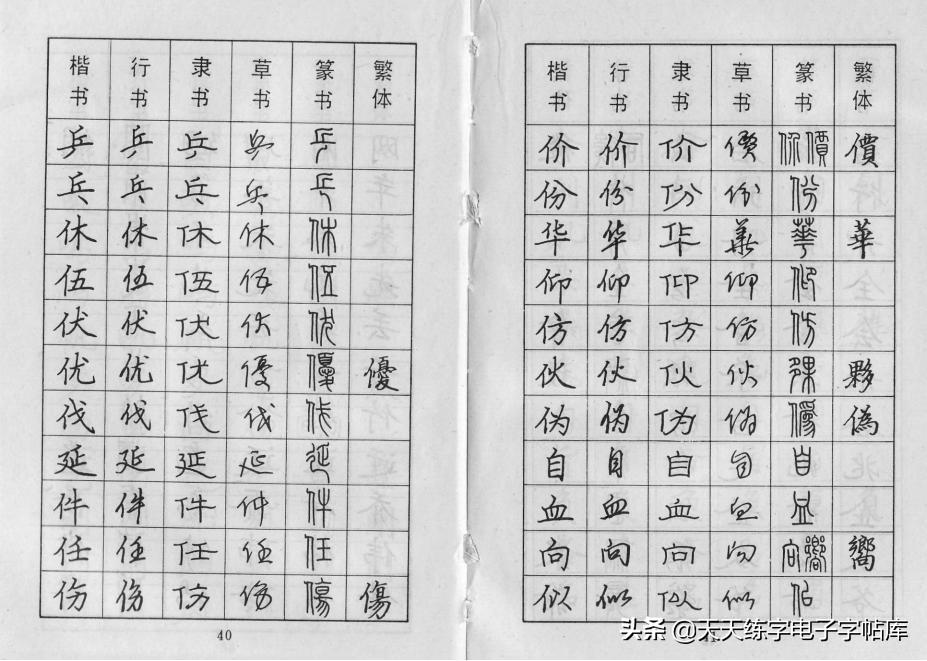 楷书 行书 隶书 草书 篆书 繁体
乒 乒 乒 乒 乒
乓 乓 乓 乓 乓
休 休 休 休 休
伍 伍 伍 伍 伍
伏 伏 伏 伏 伏
优 优 优 優 優 優
伐 伐 伐 伐 伐
延 延 延 延 延
件 件 件 件 件
任 任 任 任 任
伤 伤 伤 伤 傷 傷
40
楷书 行书 隶书 草书 篆书 繁体
价 价 价 價 价價 價
份 份 份 份 份
华 华 华 華 華 華
仰 仰 仰 仰 仰
仿 仿 仿 仿 仿
伙 伙 伙 伙 夥 夥
伪 伪 伪 伪 偽 偽
自 自 自 自 自
血 血 血 血 血
向 向 向 向 向嚮 嚮
似 似 似 似 佀
头条 @天天练字电子字帖库